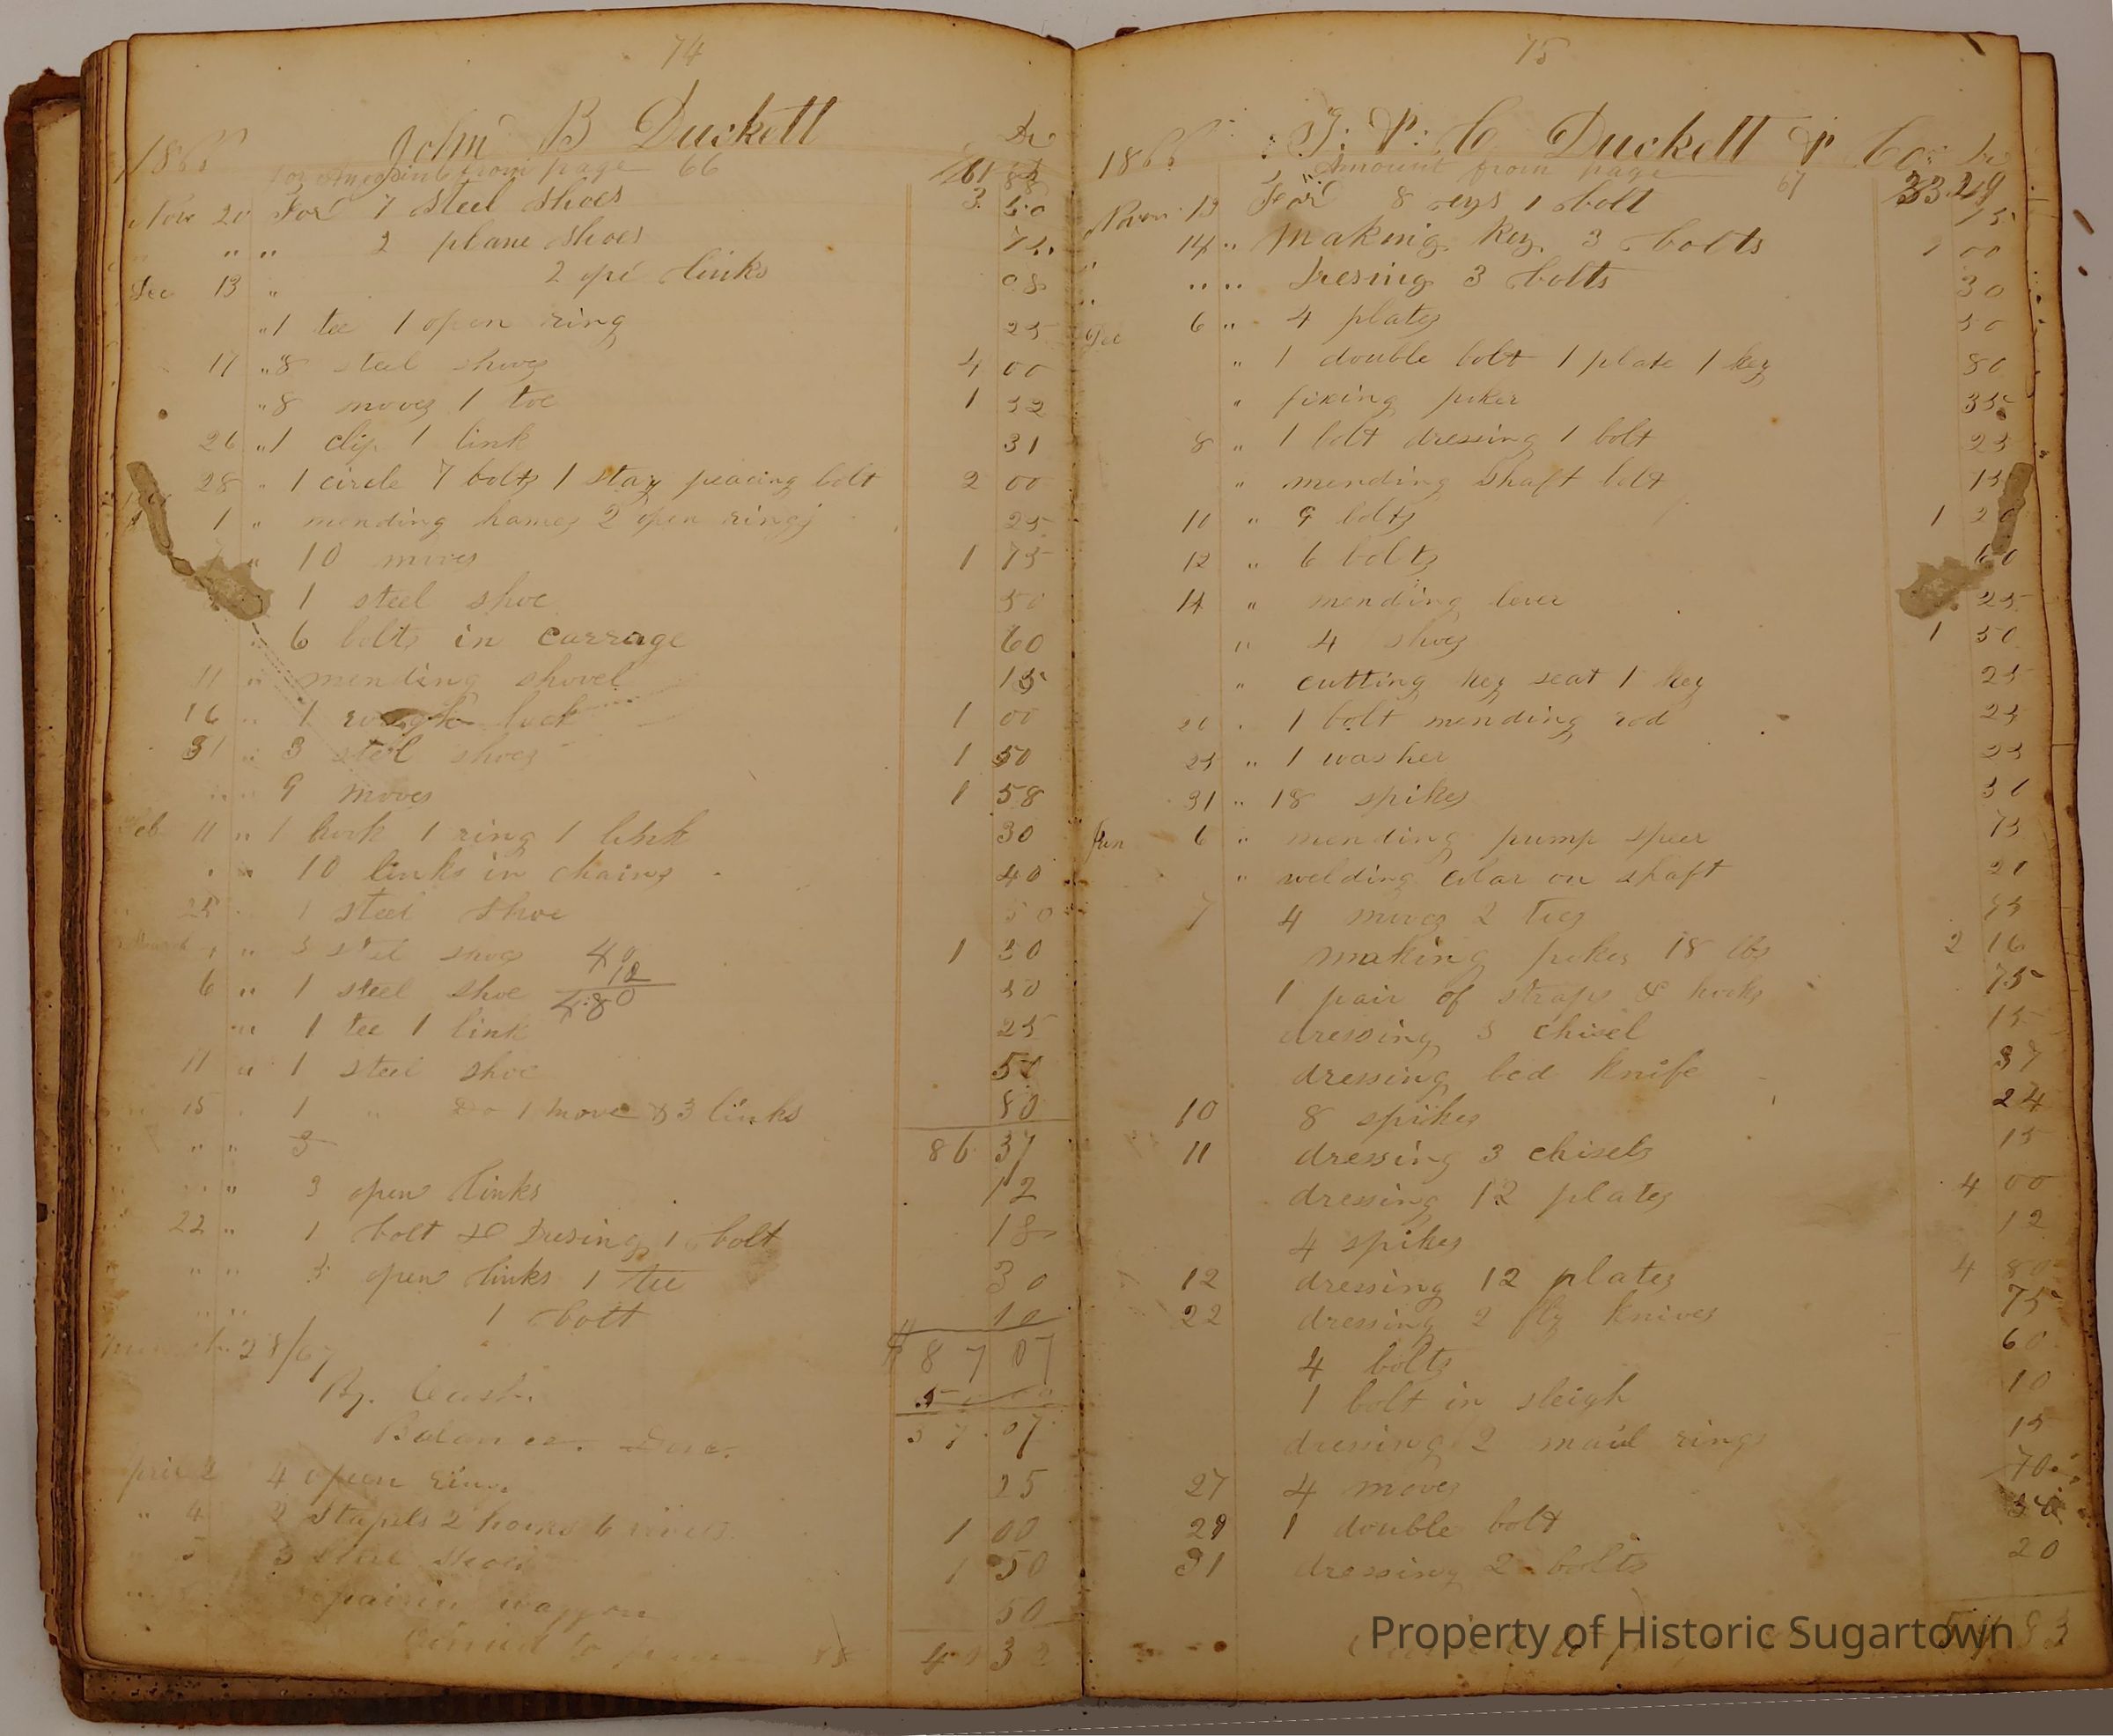 74
John B Duckett Dr
1866 For Amount from page 66 61 88
Nov 20 For 7 steel shoes 3 50
" " 2 plane shoes 75
Dec 13 " 2 ope links 08
" 1 tee 1 open ring 25
17 " 8 steel shoes 4 00
" 8 moves 1 toe 1 52
26 " 1 clip 1 link 31
28 " 1 circle 7 bolts 1 stay peacing bolt 2 00
1 " mending hames 2 open rings 25
" 10 moves 1 75
1 steel shoe 50
" 6 bolts in carrage 60
11 " mending shovel 15
16 " 1 lock 1 00
31 " 3 steel shoes 1 50
" " 9 moves 1 58
Feb 11 " 1 hook 1 ring 1 link 30
" " 10 links in chains 40
25 " 1 steel shoe 50
March 1 " 3 steel shoes 1 50
40
12
4.80
6 " 1 steel shoe 50
" " 1 tee 1 link 25
11 " 1 steel shoe 50
15 " 1 " Do 1 move & 3 links 80
" " 3 86 37
" " 3 open links 12
22 " 1 bolt & Dresing 1 bolt 18
" " 3 open links 1 tee 30
" " 1 bolt 10
March 28/67 $ 87 07
By Cash 50 00
Balance Due 37.07
April 2 4 open rings 25
" 4 2 Stapels 2 hooks 6 rivets 1 00
5 3 steel shoes 1 50
repairin waggon 50
Carried to page 85 40 32
75
T. P. C Duckett & Co Dr
1866 Amount from page 67 33.29
Novm 13 For 8 1 bolt 15
" 14 " Making Key 3 bolts 1 00
" " " Dresing 3 bolts 30
Dec 6 " 4 plates 50
" 1 double bolt 1 plate 1 key 80
" fixing poker 35
8 " 1 bolt dressing 1 bolt 25
" mending shaft bolt 15
10 " 9 bolts 1 20
12 " 6 bolts 60
14 " mending lever 25
" 4 shoes 1 50
" cutting key seat 1 key 25
20 " 1 bolt mending rod 25
25 " 1 washer 25
31 " 18 spikes 50
Jan 6 " mending pump speer 75
" welding colar on shaft 20
7 4 moves 2 Toes 95
making poker 18 lbs 2 16
1 pair of straps & hooks 75
dressing 3 chisel 15
dressing bed knife 37
10 8 spikes 24
11 dressing 3 chisels 15
dressing 12 plates 4 00
4 spikes 12
12 dressing 12 plates 4 80
22 dressing 2 fly knives 75
4 bolts 60
1 bolt in sleigh 10
dressing 2 maul rings 15
27 4 moves 70
29 1 double bolt
31 dressing 2 bolts 20
Property of Historic Sugartown